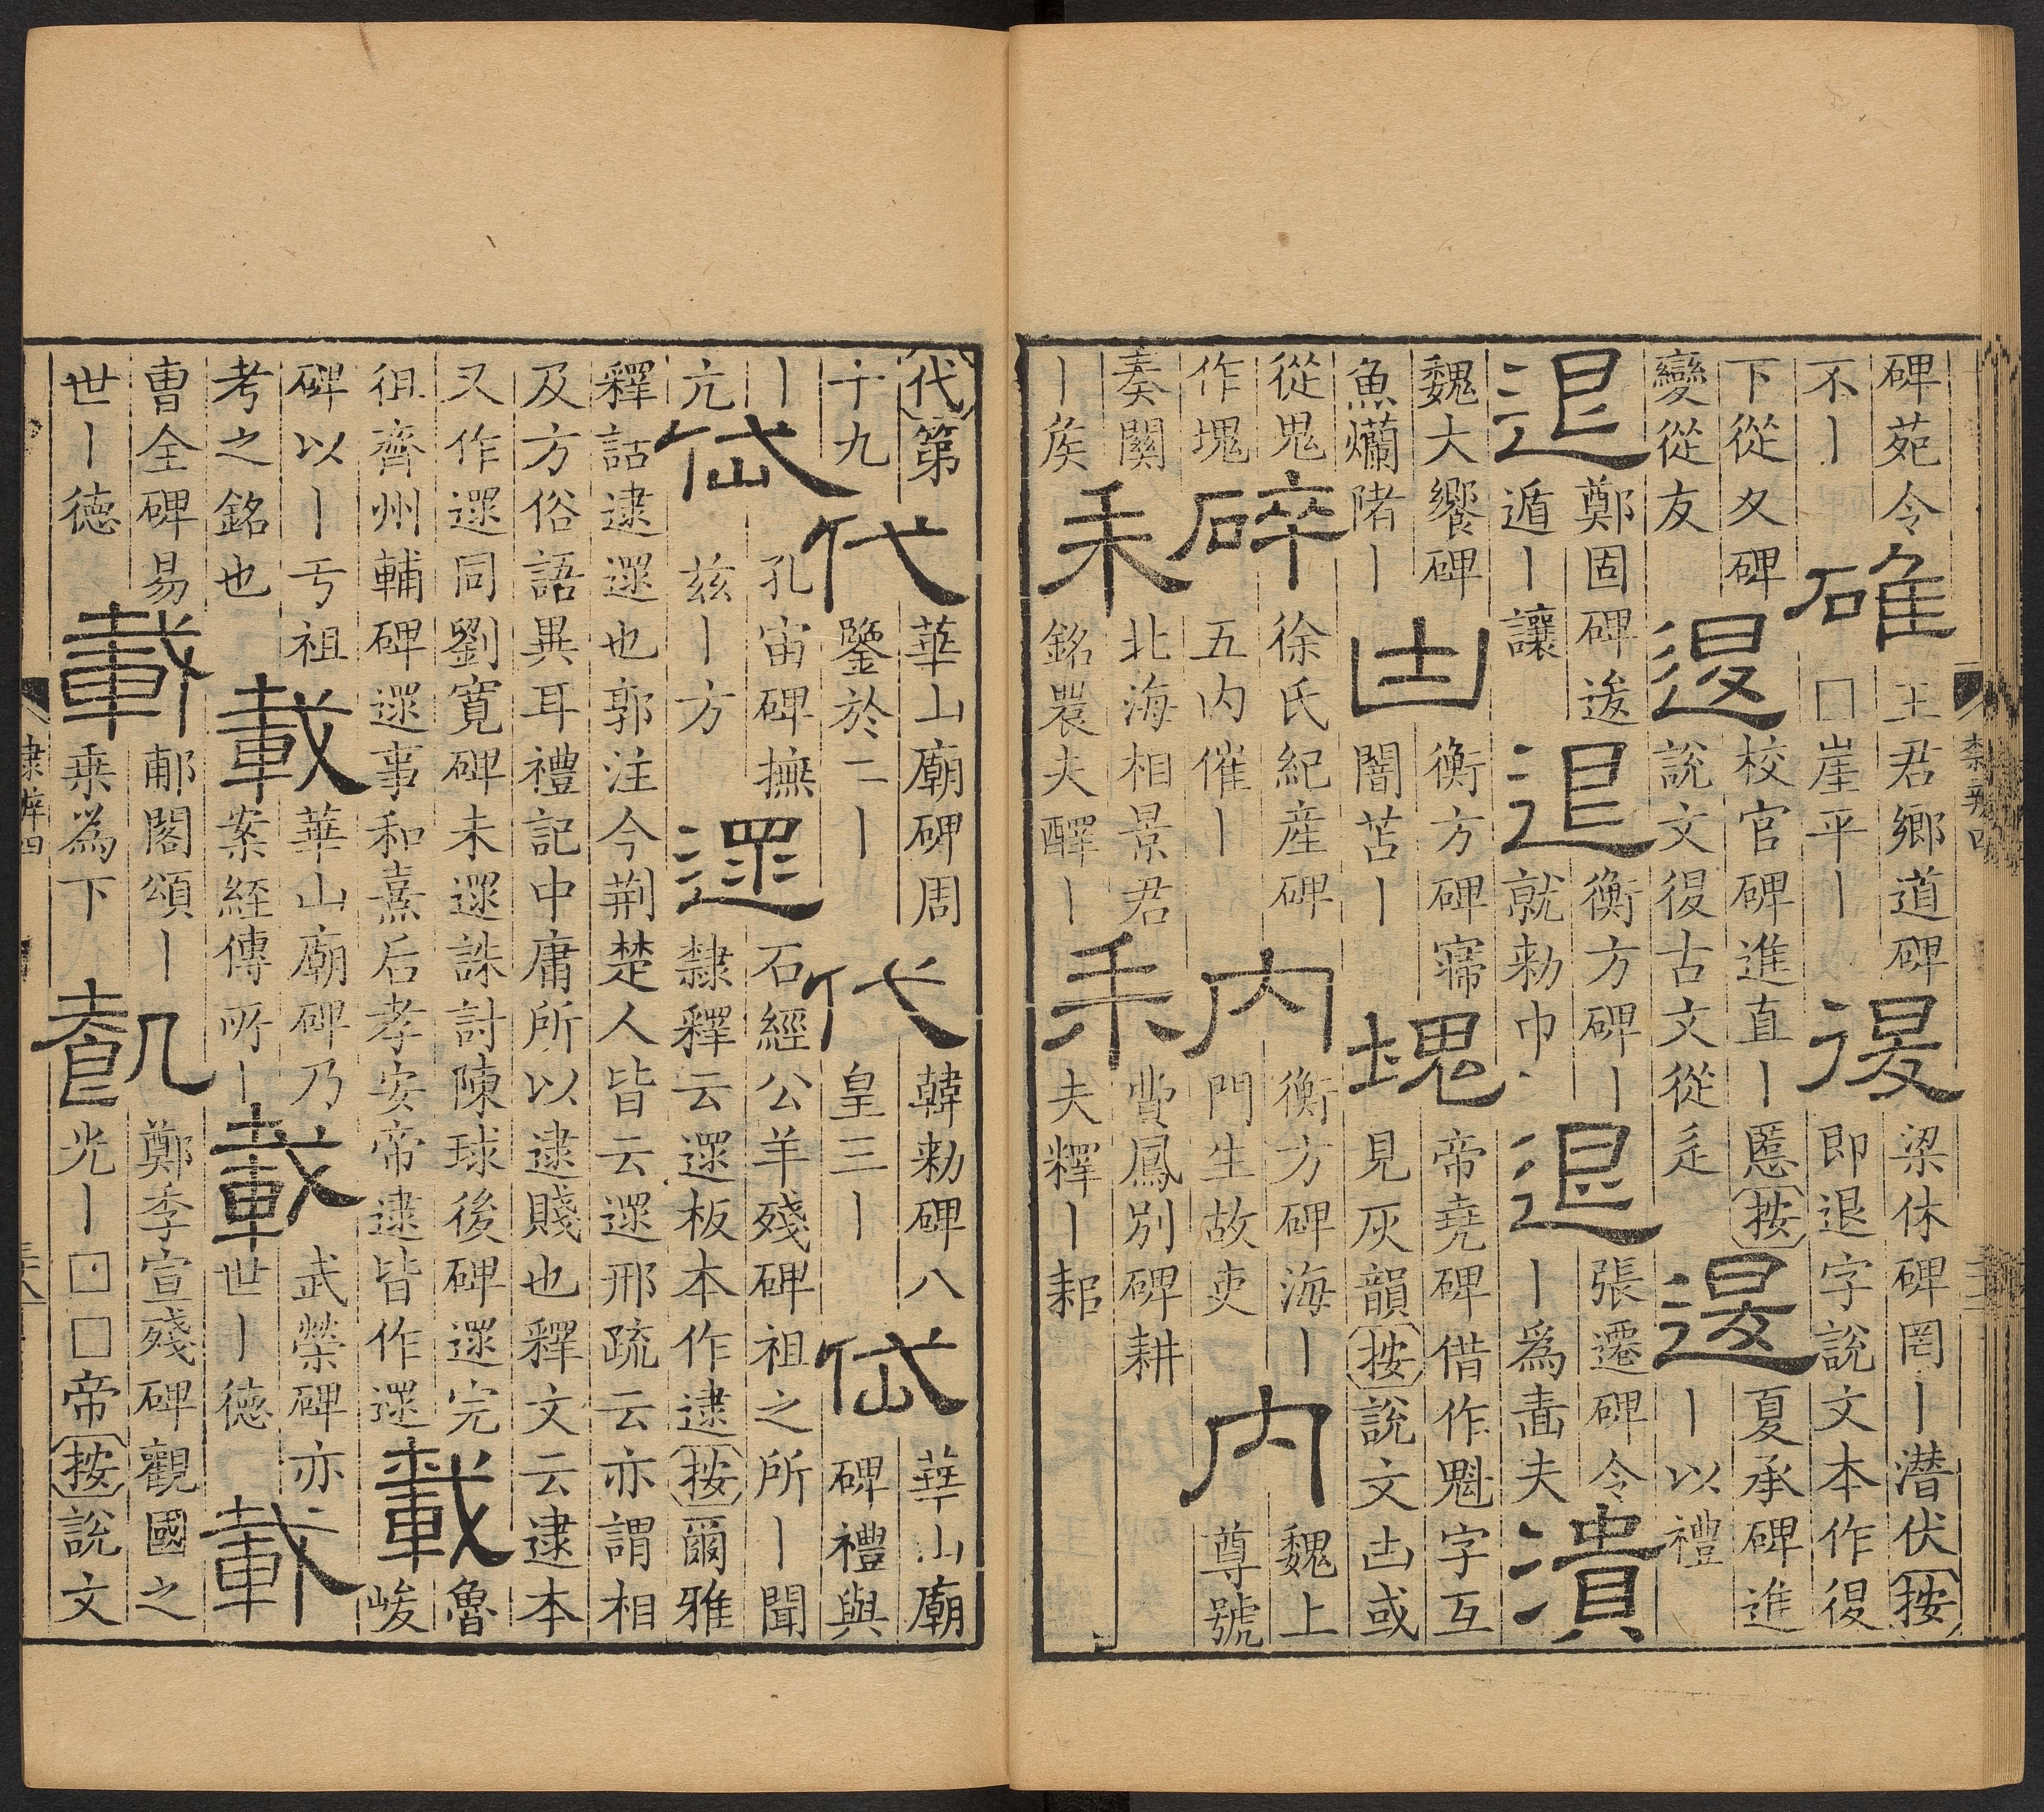 碑苑令不丨 確 王君鄉道碑□崖平丨 復 梁休碑罔丨潜伏按即退字說文本作復
下從夂碑變從友 退 校官碑進直丨慝按說文復古文從辵 退 夏承碑進丨以禮
退 鄭固碑逡遁丨讓 退 衡方碑丨就勑巾 退 張遷碑令丨爲嗇夫 潰
魏大饗碑魚爤陼丨 凷 衡方碑寢闇苫丨 塊 帝堯碑借作魁字互見灰韻按說文凷或
從鬼作塊 碎 徐氏紀産碑五内催丨 内 衡方碑海丨門生故吏 内 魏上尊號
奏關丨矦 耒 北海相景君銘農夫醳丨 耒 費鳳别碑耕夫釋丨耜
代第十九 代 華山廟碑周鑒於二丨 代 韓勑碑八皇三丨 岱 華山廟碑禮與
丨亢 岱 孔宙碑撫兹丨方 遝 石經公羊殘碑祖之所丨聞隸釋云遝板本作逮按爾雅
釋詁逮遝也郭注今荆楚人皆云遝邢疏云亦謂相及方俗語異耳禮記中庸所以逮賤也釋文云逮本
又作遝同劉寛碑未遝誅討陳球後碑遝完徂齊州輔碑遝事和熹后孝安帝逮皆作遝 載 魯峻
碑以丨亏祖考之銘也 載 華山廟碑乃案經傳所丨 載 武榮碑亦世丨德 載
曹全碑易世丨德 載 郙閣頌丨乗為下 鄭季宣殘碑觀國之光丨□□帝按說文
隸辨四